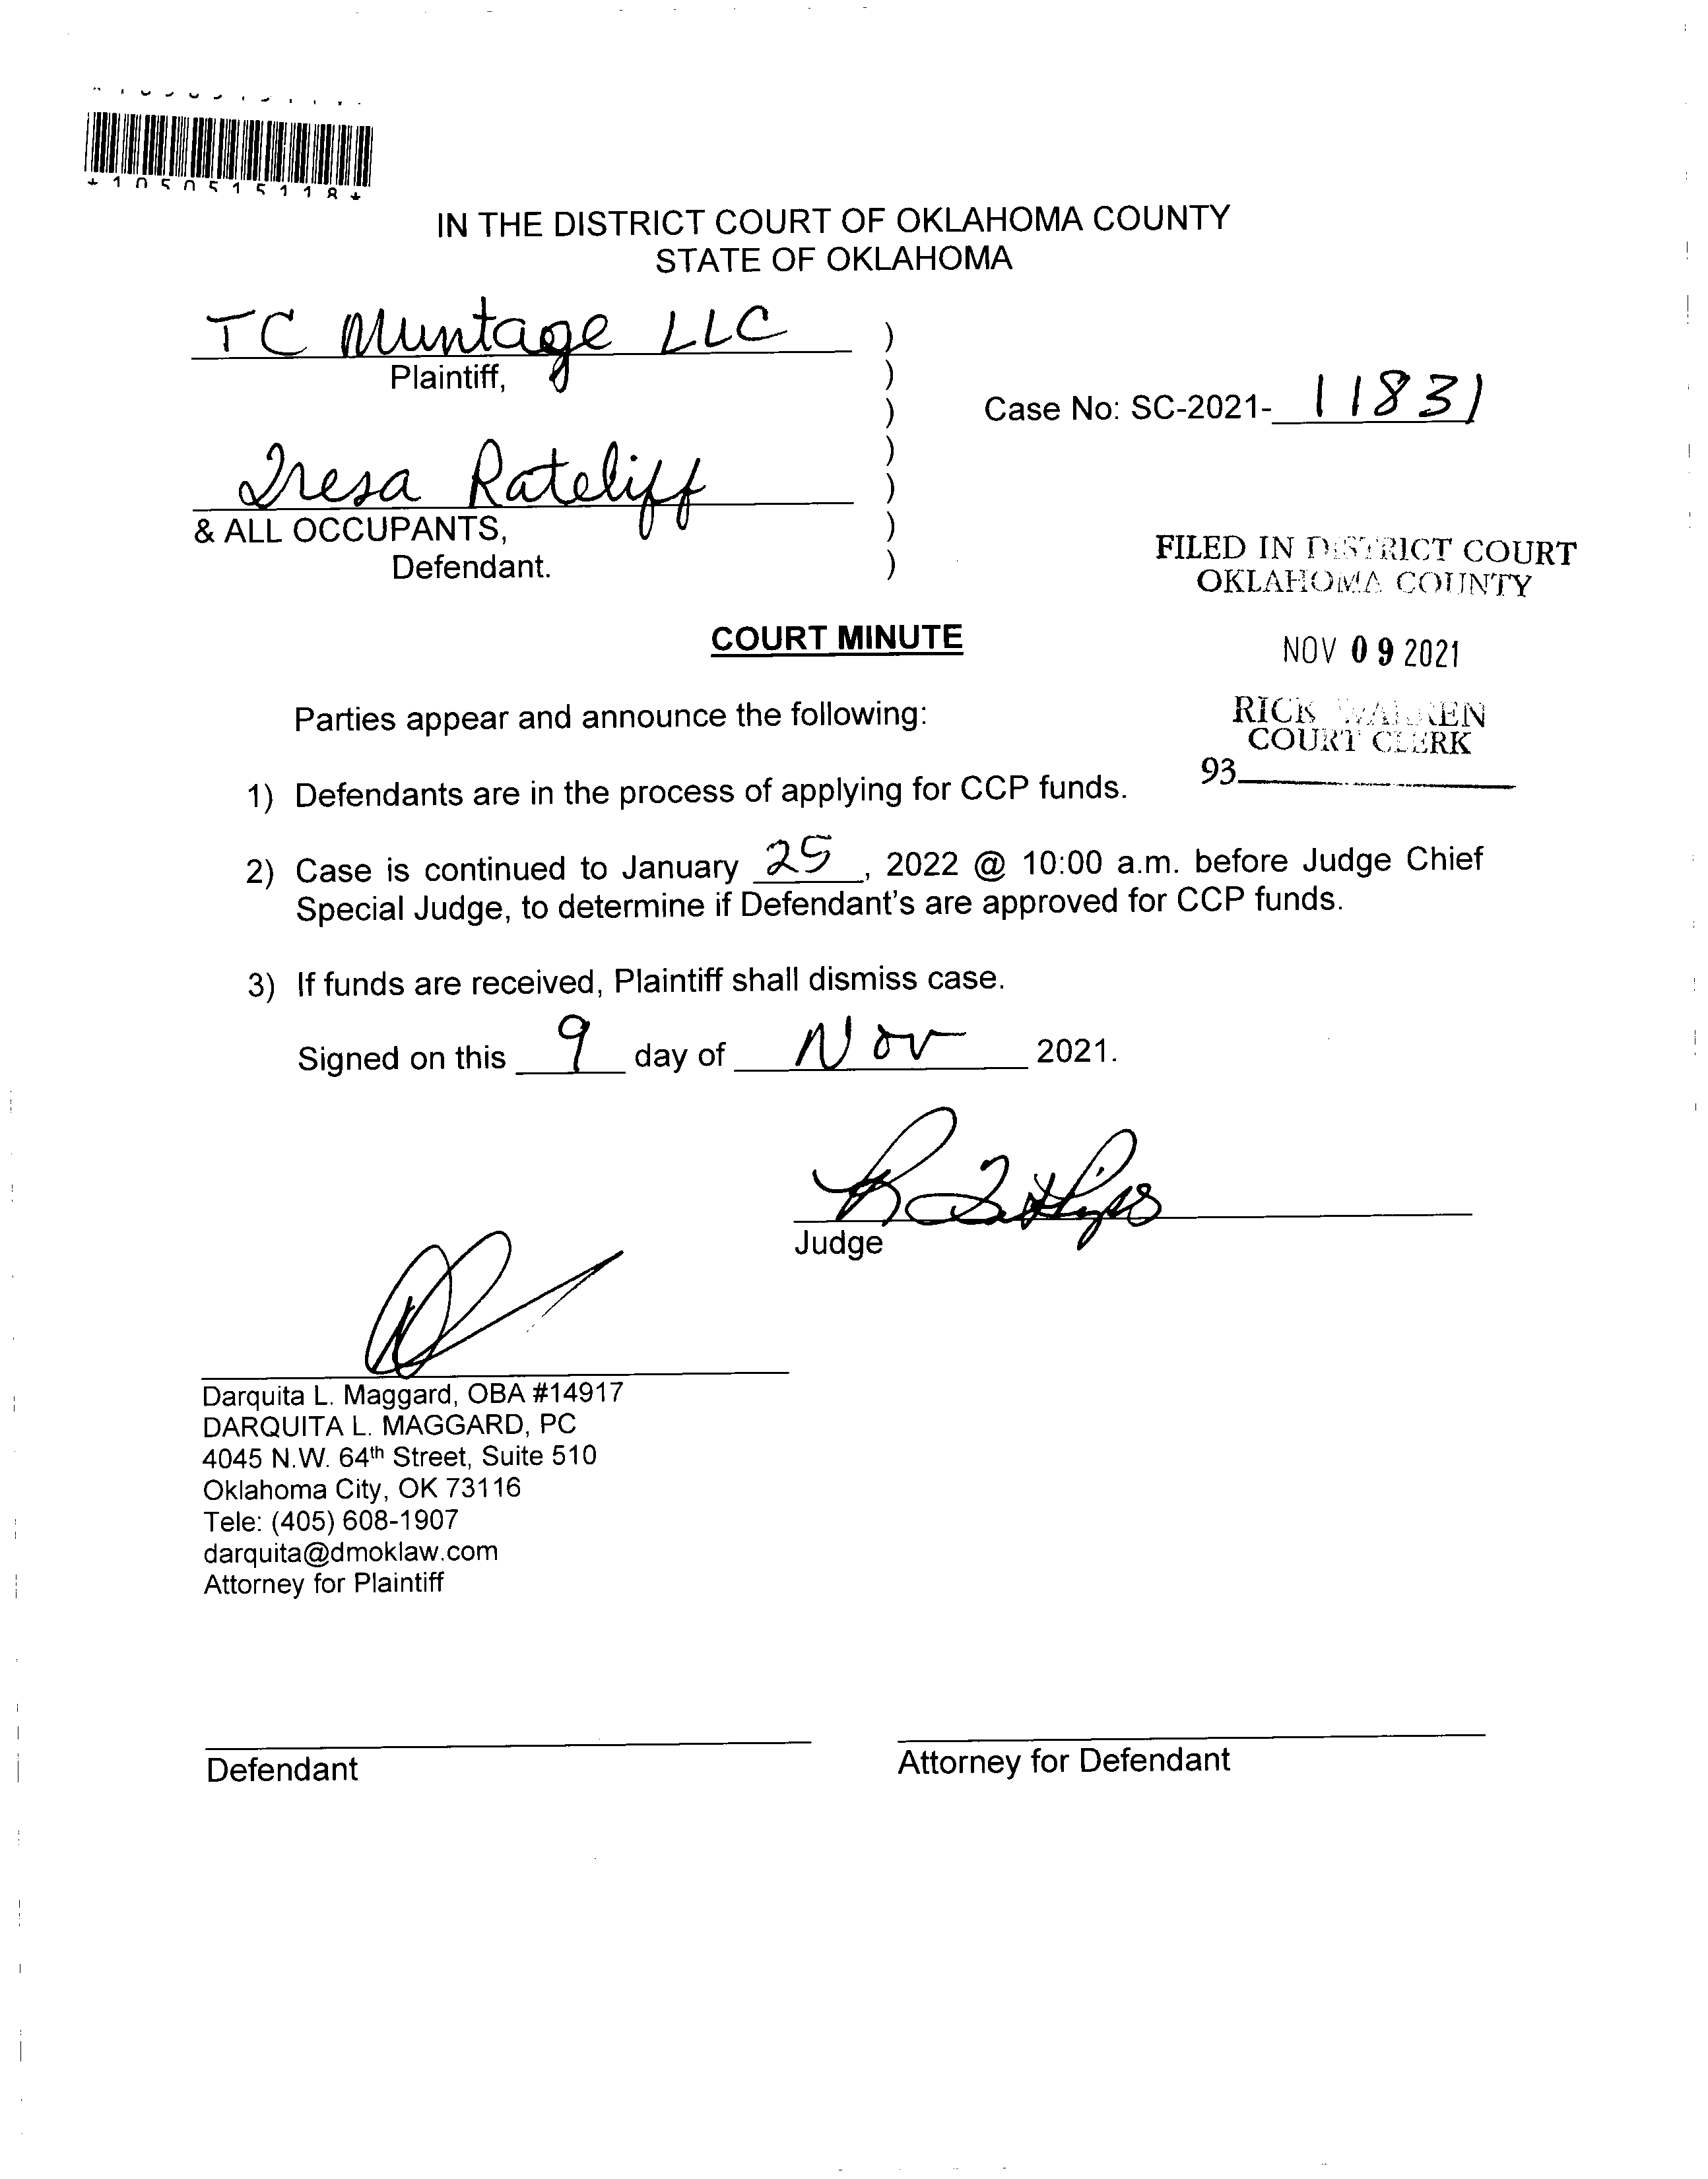 *1050515118*
IN THE DISTRICT COURT OF OKLAHOMA COUNTY
STATE OF OKLAHOMA
TC Muntage LLC )
Plaintiff, )
) Case No: SC-2021- 11831
)
Iresa Rateliff )
& ALL OCCUPANTS, )
Defendant. )
FILED IN DISTRICT COURT
OKLAHOMA COUNTY
NOV 09 2021
RICK WARREN
COURT CLERK
93
COURT MINUTE
Parties appear and announce the following:
1) Defendants are in the process of applying for CCP funds.
2) Case is continued to January 25, 2022 @ 10:00 a.m. before Judge Chief
Special Judge, to determine if Defendant's are approved for CCP funds.
3) If funds are received, Plaintiff shall dismiss case.
Signed on this 9 day of Nov 2021.
Judge
Darquita L. Maggard, OBA #14917
DARQUITA L. MAGGARD, PC
4045 N.W. 64th Street, Suite 510
Oklahoma City, OK 73116
Tele: (405) 608-1907
darquita@dmoklaw.com
Attorney for Plaintiff
Defendant
Attorney for Defendant